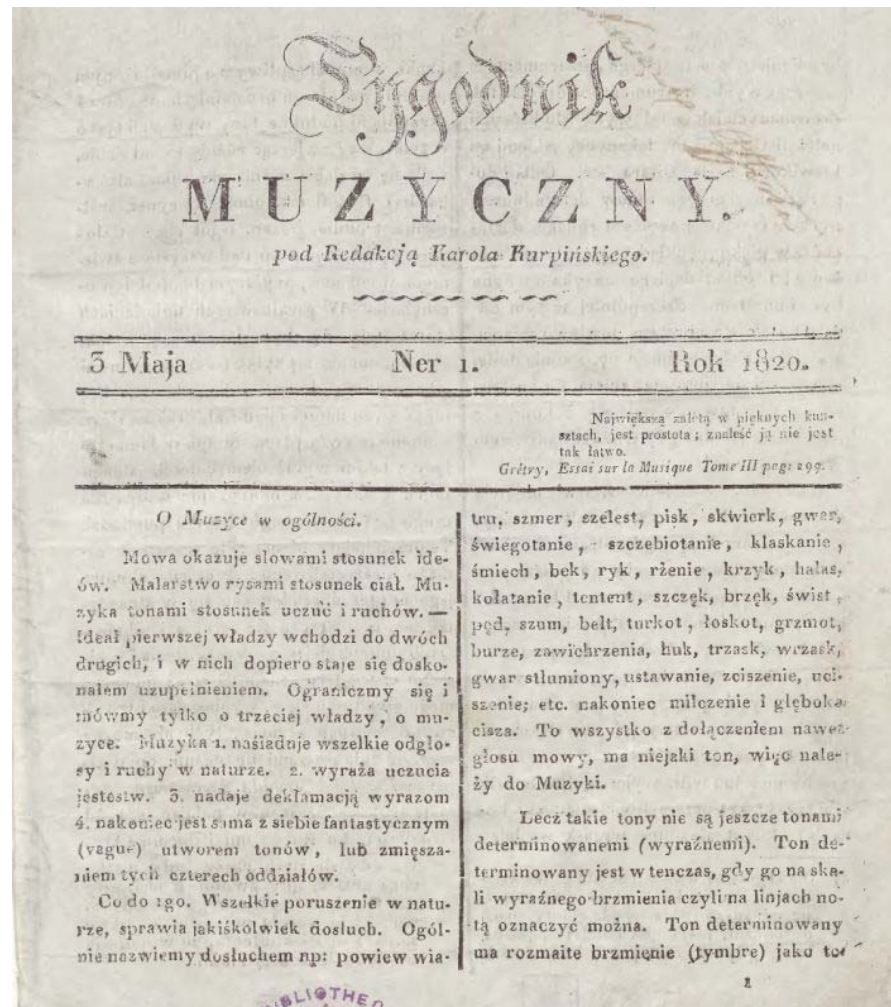 Tygodnik
MUZYCZNY.
pod Redakcją Karola Kurpińskiego.
3 Maja Ner 1. Rok 1820.
Największą zaletą w pięknych kun-
sztach, jest prostota; znaleść ją nie jest
tak łatwo.
Grétry, Essai sur la Musique Tome III pag: 299.
O Muzyce w ogólności.
Mowa okazuje słowami stosunek ide-
ów. Malarstwo rysami stosunek ciał. Mu-
zyka tonami stosunek uczuć i ruchów. —
Ideał pierwszej władzy wchodzi do dwóch
drugich, i w nich dopiero staje się dosko-
nałem uzupełnieniem. Ograniczmy się i
mówmy tylko o trzeciej władzy, o mu-
zyce. Muzyka 1. naśladuje wszelkie odgło-
sy i ruchy w naturze. 2. wyraża uczucia
jestestw. 3. nadaje deklamacją wyrazom
4. nakoniec jest sama z siebie fantastycznym
(vague) utworem tonów, lub zmięsza-
niem tych czterech oddziałów.
Co do 1go. Wszelkie poruszenie w natu-
rze, sprawia jakiśkolwiek dosłuch. Ogól-
nie nazwiemy dosłuchem np: powiew wia-
tru, szmer, szelest, pisk, skwierk, gwar,
świegotanie, szczebiotanie, klaskanie,
śmiech, bek, ryk, rżenie, krzyk, hałas,
kołatanie, tentent, szczęk, brzęk, świst,
pęd, szum, bełt, turkot, łoskot, grzmot,
burze, zawichrzenia, huk, trzask, wrzask,
gwar stłumiony, ustawanie, zciszenie, uci-
szenie; etc. nakoniec milczenie i głęboka
cisza. To wszystko z dołączeniem nawet
głosu mowy, ma niejaki ton, więc nale-
ży do Muzyki.
Lecz takie tony nie są jeszcze tonami
determinowanemi (wyraźnemi). Ton de-
terminowany jest w tenczas, gdy go na ska-
li wyraźnego brzmienia czyli na linjach no-
tą oznaczyć można. Ton determinowany
ma rozmaite brzmienie (tymbre) jako to:
1
BIBLIOTHE